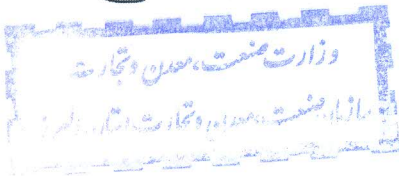 وزارت صنعت، معدن و تجارت
سازمان صنعت، معدن و تجارت استان